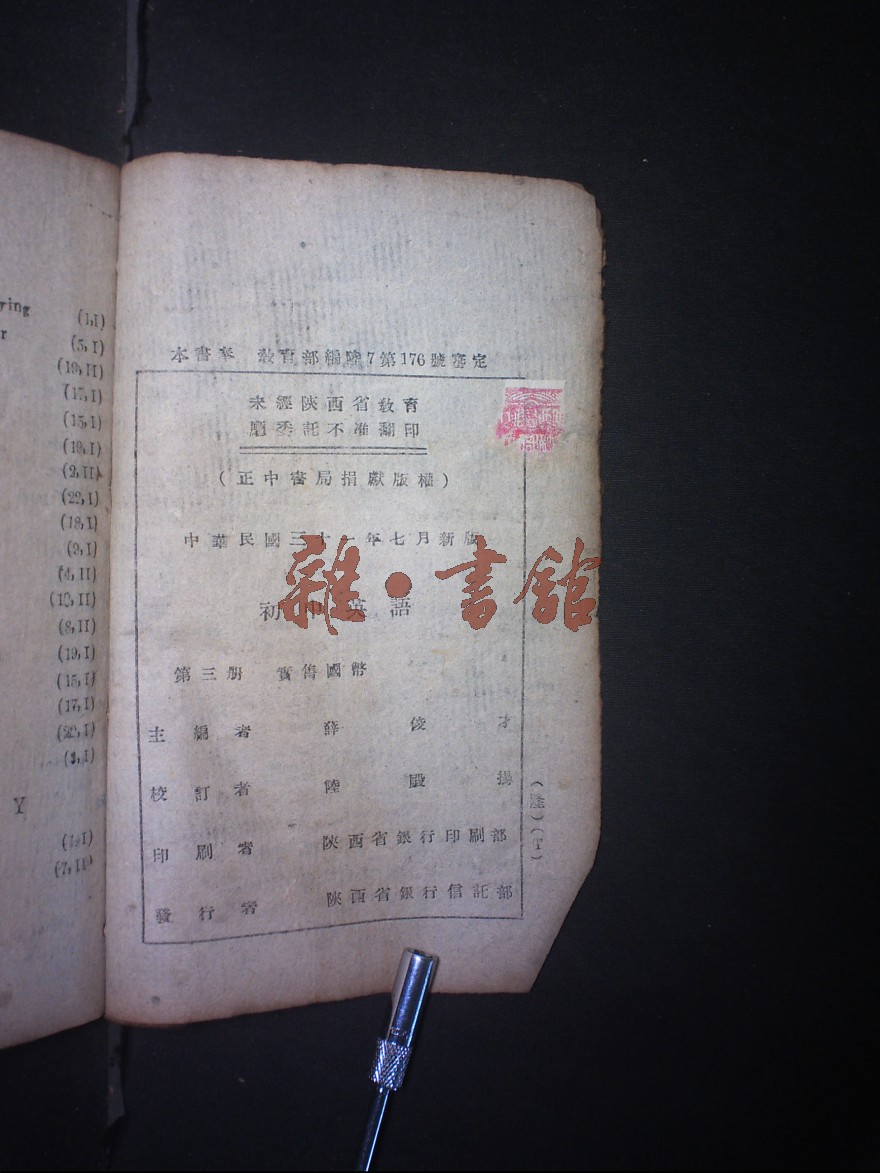 (1,I)
(5,I)
(19,II)
(17,I)
(15,I)
(19,I)
(2,II)
(22,I)
(18,I)
(9,I)
(4,II)
(8,II)
(19,I)
(15,I)
(17,I)
(22,I)
Y
本書奉 教育部編陸7第176號審定
未經陝西省教育
廳委託不准翻印
(正中書局捐獻版權)
中華民國三十一年七月新版
雜·書館
初中英語
第三册 實售國幣
主編者 薛俊才
校訂者 陸殿揚
印刷者 陝西省銀行印刷部
發行者 陝西省銀行信託部